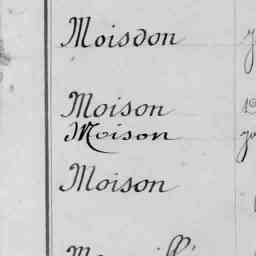 Moisdon
Moison
Moison
Moison